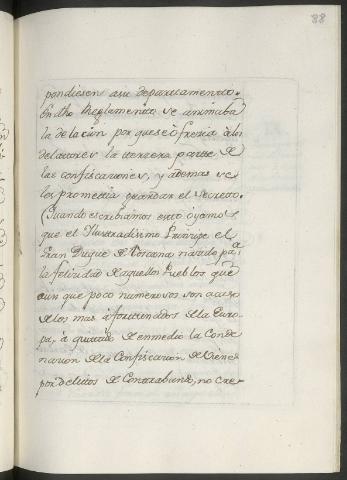 88
pondiesen a su departamento.
En dho Reglamento se animaba
la delacion por que se ofrecia à los
delatores la tercera parte de
las confiscaciones, y ademas se
les prometia guardar el secreto.
(Quando escribiamos esto oyamos
que el Ilustradisimo Principe el
Gran Duque de Toscana nacido pa.ª
la felicidad de aquellos Pueblos que
aun que poco numerosos son acaso
de los mas afortunados de la Euro-
pa, à quitado de enmedio la Conde
nacion de la Confiscacion de Viene
por delitos de Contrabando, no cre-